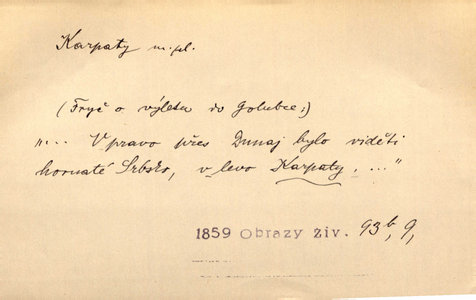 Karpaty m. pl.
(Fryč o výletu do Golubce:)
"... Vpravo přes Dunaj bylo viděti
hornaté Srbsko, v levo Karpaty, ..."
1859 Obrazy živ. 93b, 9,